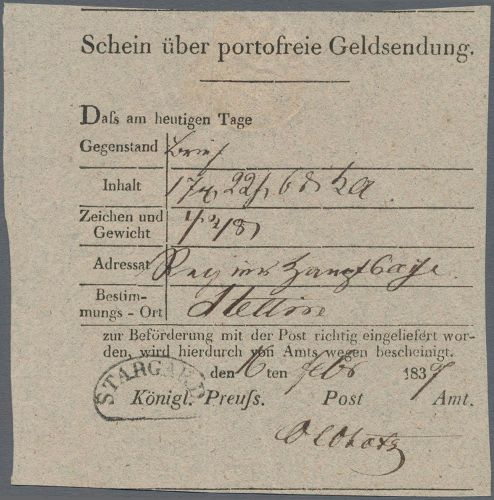 Schein über portofreie Geldsendung.
Daſs am heutigen Tage
Gegenstand Brief
Inhalt 17 22 6
Zeichen und
Gewicht
Adressat Regierungs Hauptkasse
Bestim-
mungs - Ort Stettin
zur Beförderung mit der Post richtig eingeliefert wor-
den, wird hierdurch von Amts wegen bescheinigt.
den 16 ten Febr 1837
STARGARD
Königl. Preuſs. Post Amt.